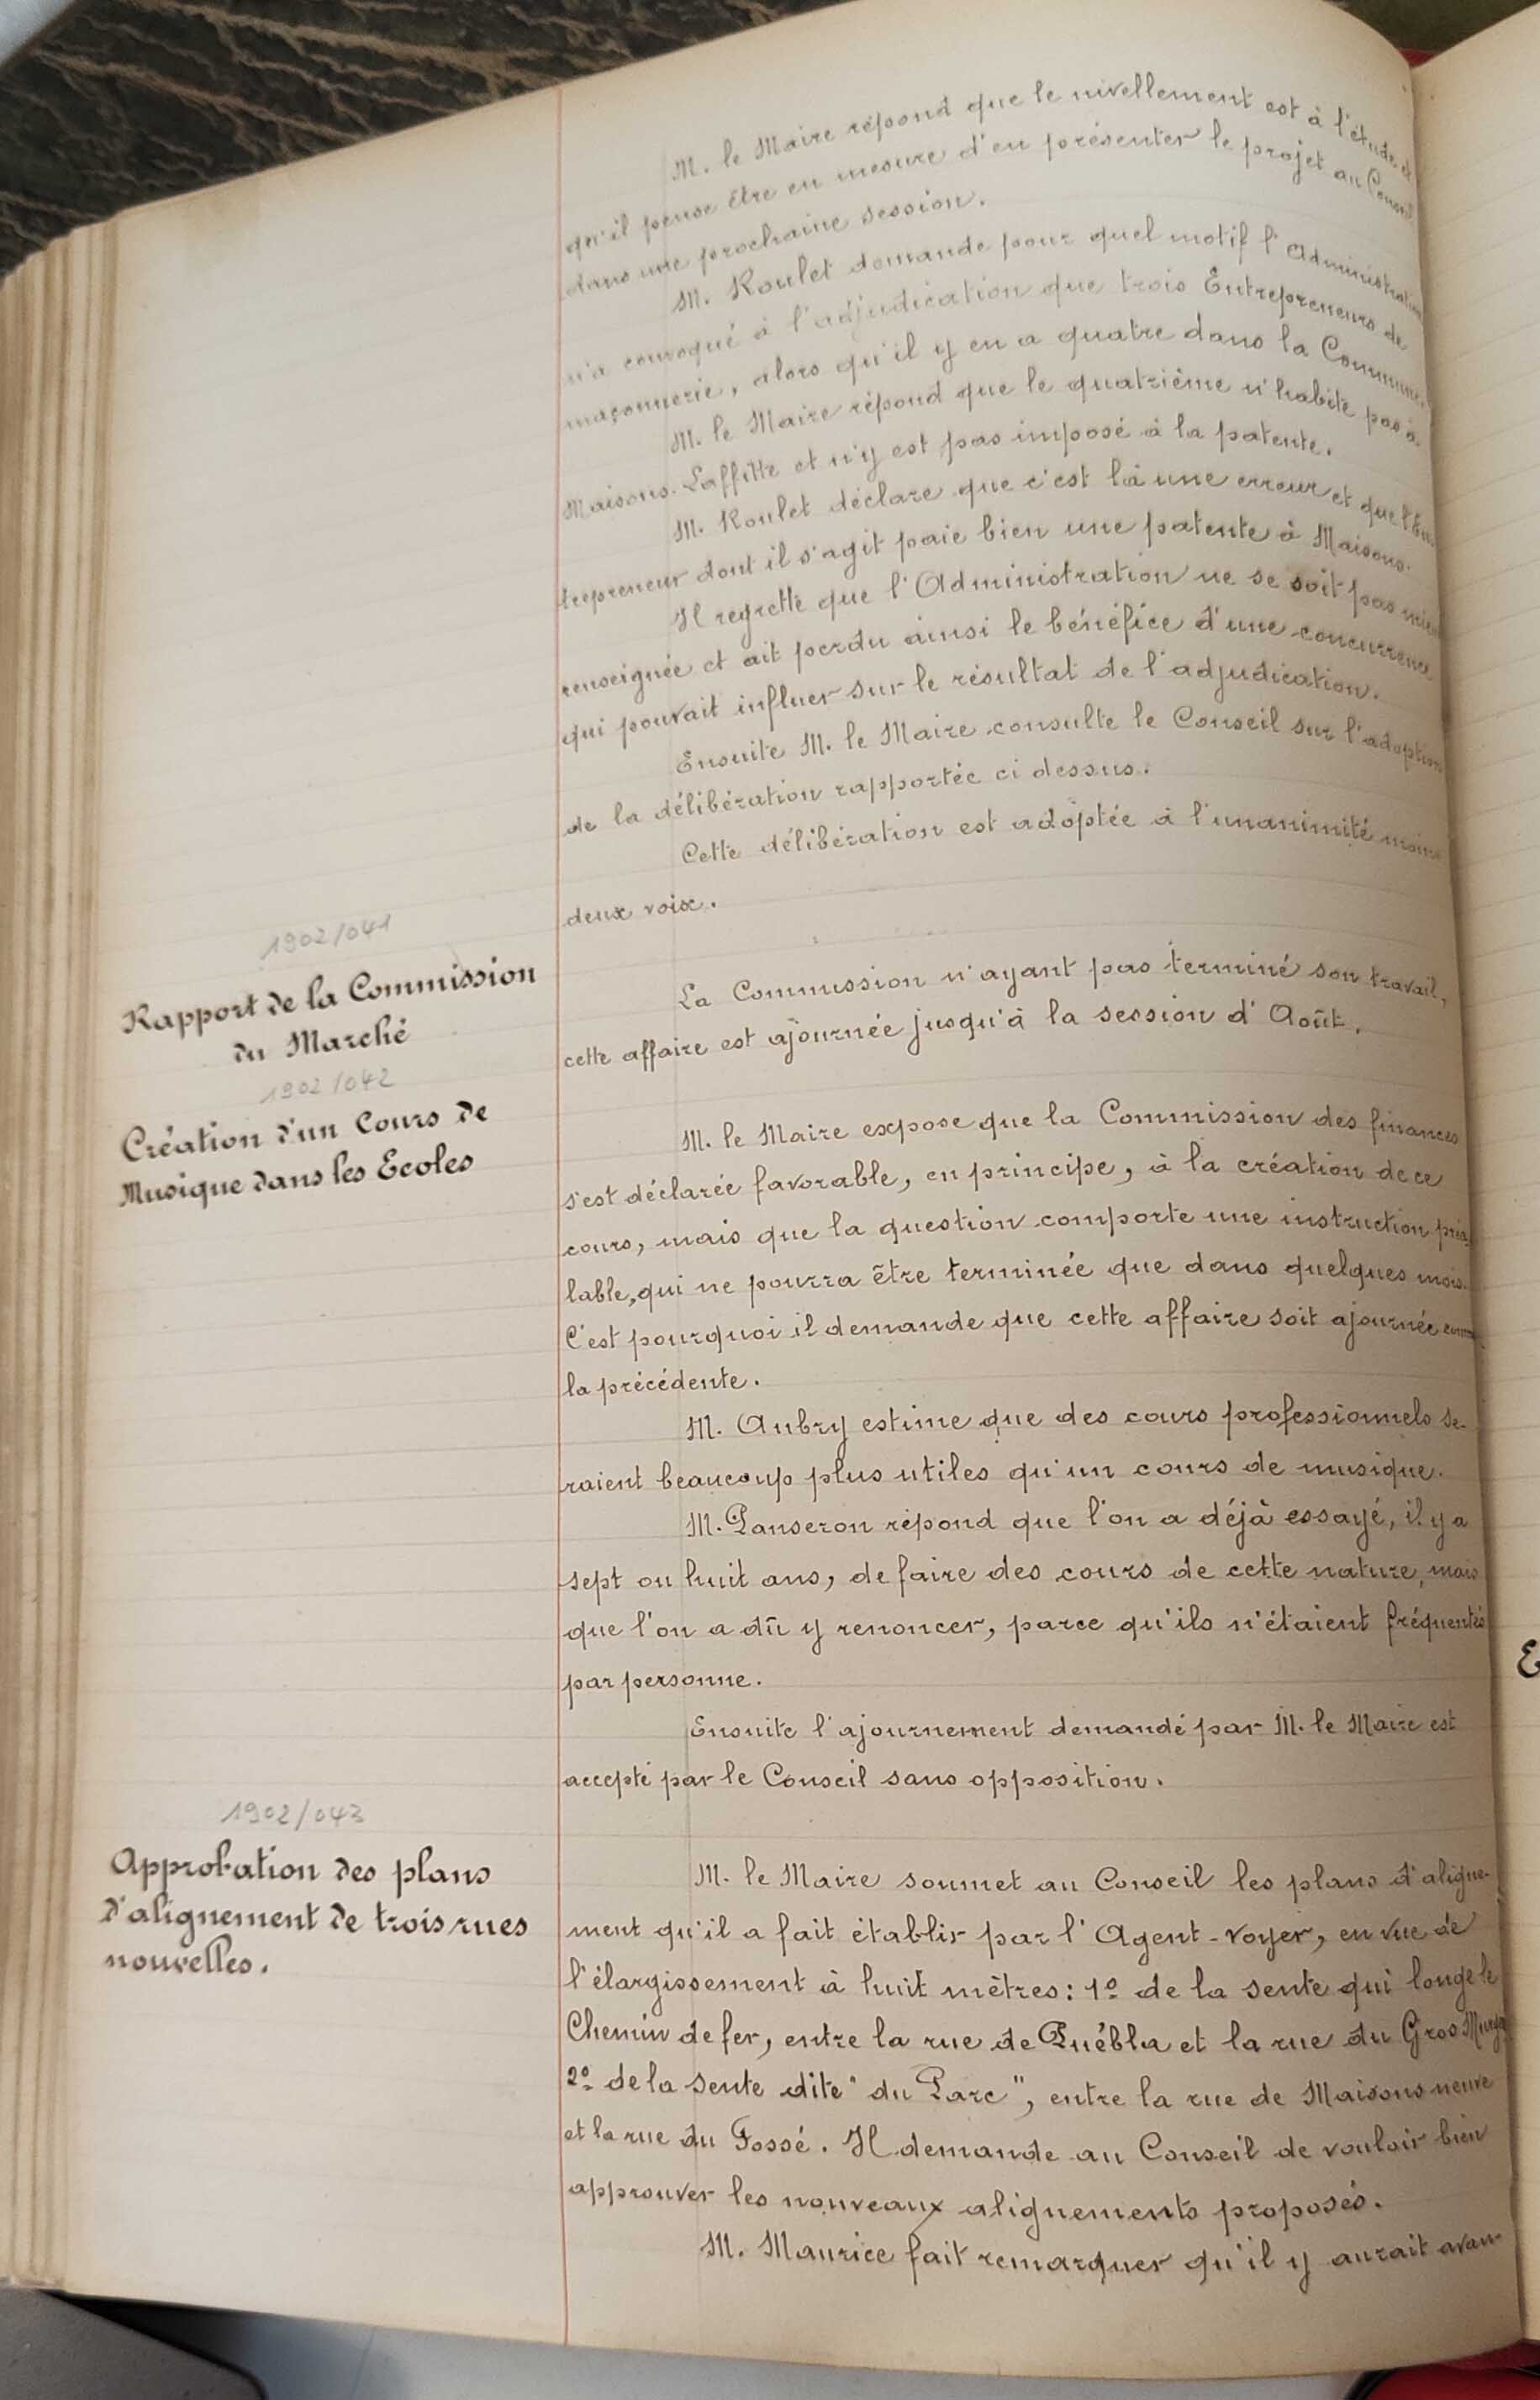 M. le Maire répond que le nivellement est à l'étude et
qu'il pense être en mesure d'en présenter le projet au Conseil
dans une prochaine session.
M. Roulet demande pour quel motif l'Administration
n'a convoqué à l'adjudication que trois Entrepreneurs de
maçonnerie, alors qu'il y en a quatre dans la Commune.
M. le Maire répond que le quatrième n'habite pas à
Maisons-Laffitte et n'y est pas imposé à la patente.
M. Roulet déclare que c'est là une erreur et que l'En-
trepreneur dont il s'agit paie bien une patente à Maisons.
Il regrette que l'Administration ne se soit pas mieux
renseignée et ait perdu ainsi le bénéfice d'une concurrence
qui pouvait influer sur le résultat de l'adjudication.
Ensuite M. le Maire consulte le Conseil sur l'adoption
de la délibération rapportée ci dessus.
Cette délibération est adoptée à l'unanimité moins
deux voix.
1902/041
Rapport de la Commission
du Marché
La Commission n'ayant pas terminé son travail,
cette affaire est ajournée jusqu'à la session d'Août.
1902/042
Création d'un Cours de
Musique dans les Ecoles
M. le Maire expose que la Commission des finances
s'est déclarée favorable, en principe, à la création de ce
cours, mais que la question comporte une instruction préa-
lable, qui ne pourra être terminée que dans quelques mois.
C'est pourquoi il demande que cette affaire soit ajournée comme
la précédente.
M. Aubry estime que des cours professionnels se-
raient beaucoup plus utiles qu'un cours de musique.
M. Panseron répond que l'on a déjà essayé, il y a
sept ou huit ans, de faire des cours de cette nature, mais
que l'on a dû y renoncer, parce qu'ils n'étaient fréquentés
par personne.
Ensuite l'ajournement demandé par M. le Maire est
accepté par le Conseil sans opposition.
1902/043
Approbation des plans
d'alignement de trois rues
nouvelles.
M. le Maire soumet au Conseil les plans d'aligne-
ment qu'il a fait établir par l'Agent-Voyer, en vue de
l'élargissement à huit mètres: 1º de la sente qui longe le
Chemin de fer, entre la rue de Puébla et la rue du Gros Murger
2º de la sente dite "du Parc", entre la rue de Maisons neuve
et la rue du Fossé. Il demande au Conseil de vouloir bien
approuver les nouveaux alignements proposés.
M. Maurice fait remarquer qu'il y aurait avan-